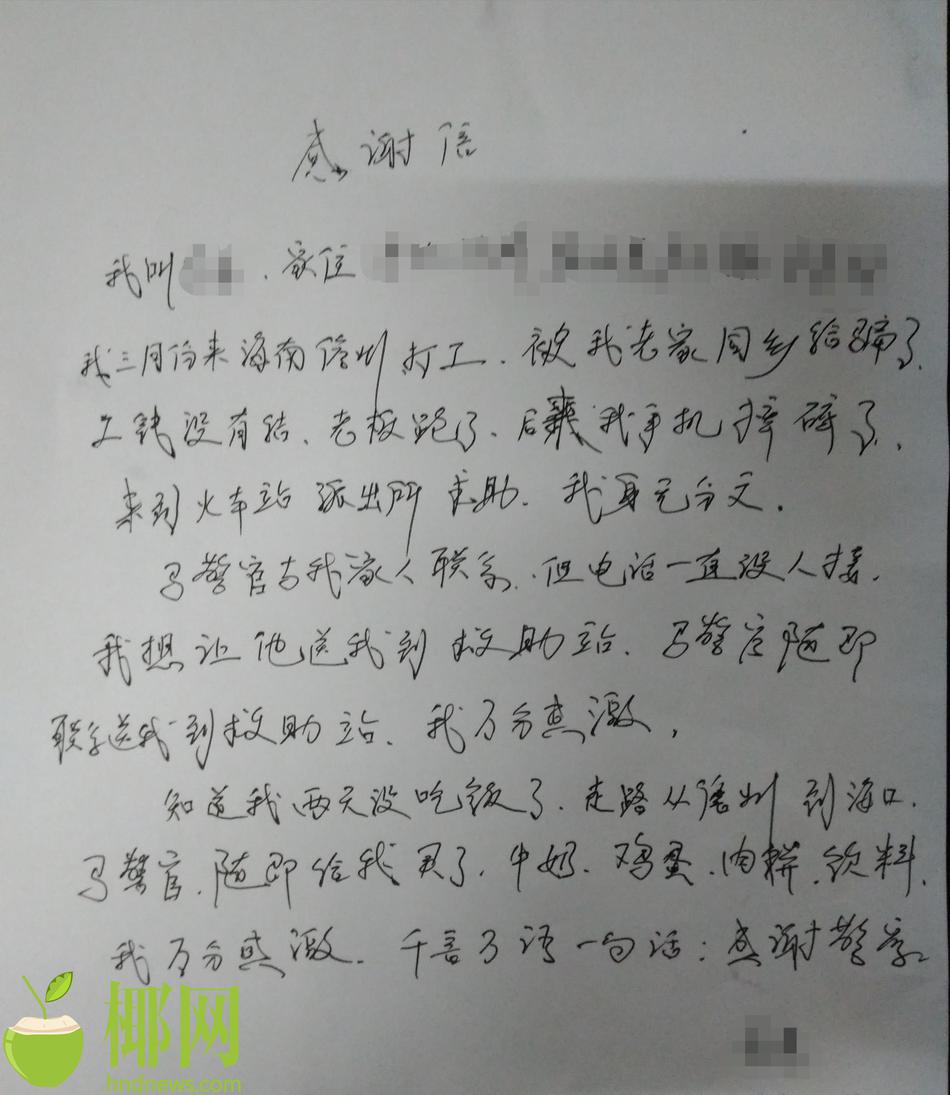 感谢信
我叫 、家住
我三月份来海南儋州打工、被我老家同乡给骗了、
工钱没有结、老板跑了、后 我手机摔碎了、
来到火车站派出所求助、我身无分文.
马警官与我家人联系、但电话一直没人接、
我想让他送我到救助站、马警官随即
联系送我到救助站、我万分感激,
知道我两天没吃饭了、走路从儋州到海口、
马警官、随即给我买了、牛奶、鸡蛋、肉饼、饮料、
我万分感激、千言万语一句话:感谢警察
椰网
hndnews.com